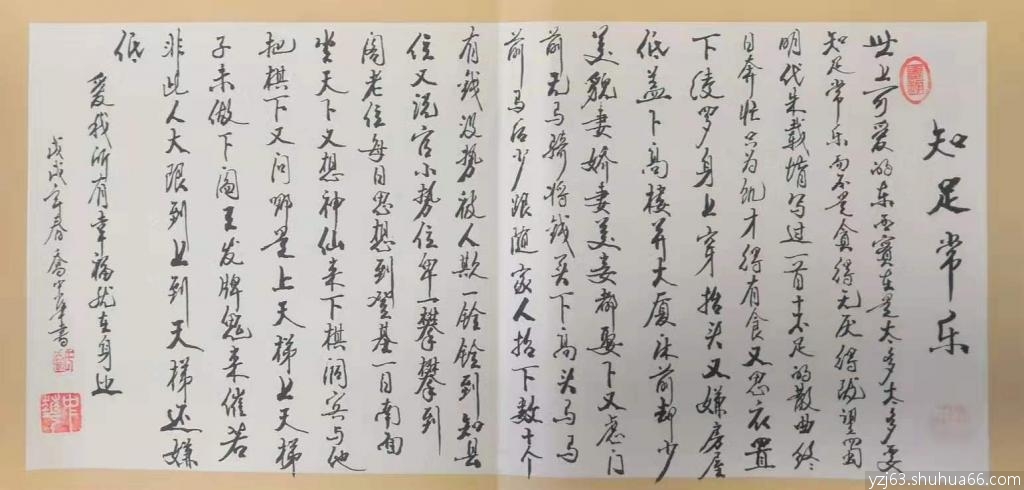 知足常乐
世上可爱的东西实在是太多太多要
知足常乐而不是贪得无厌得陇望蜀
明代朱载堉写过一首十不足的散曲终
日奔忙只为饥才得有食又思衣置
下绫罗身上穿抬头又嫌房屋
低盖下高楼并大厦床前却少
美貌妻娇妻美妾都娶下又虑门
前无马骑将钱买下高头马马
前马后少跟随家人招下数十个
有钱没势被人欺一铨铨到知县
位又说官小势位卑一攀攀到
阁老位每日思想到登基一日南面
坐天下又想神仙来下棋洞宾与他
把棋下又问哪是上天梯上天梯
子未做下阎王发牌鬼来催若
非此人大限到上到天梯还嫌
低
爱我所有幸福就在身边
戊戌年春 乔中华书
中华
yzj63.shuhua66.com